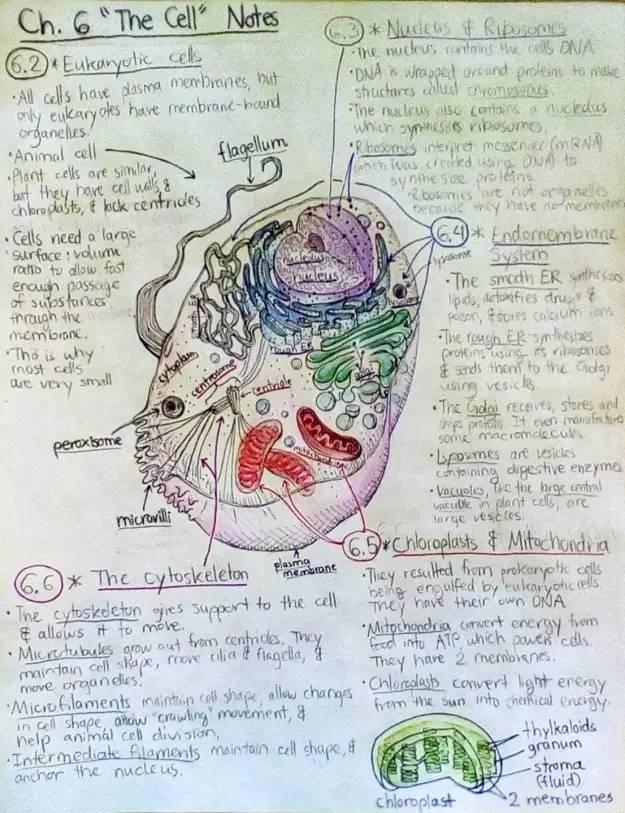 Ch. 6 "The Cell" Notes
6.2 * Eukaryotic cells
• All cells have plasma membranes, but
only eukaryotes have membrane-bound
organelles.
• Animal cell
• Plant cells are similar,
but they have cell walls &
chloroplasts, & lack centrioles
• Cells need a large
surface : volume
ratio to allow fast
enough passage
of substances
through the
membrane.
• This is why
most cells
are very small
6.3 * Nucleus & Ribosomes
• The nucleus contains the cell's DNA
• DNA is wrapped around proteins to make
structures called chromosomes.
• The nucleus also contains a nucleolus
which synthesizes ribosomes.
• Ribosomes interpret messenger (mRNA)
(which was created using DNA) to
synthesize proteins.
• Ribosomes are not organelles
because they have no membrane
6.4 * Endomembrane
System
• The smooth ER synthesizes
lipids, detoxifies drugs &
poison, & stores calcium ions
• The rough ER synthesizes
proteins using its ribosomes
& sends them to the Golgi
using vesicles
• The Golgi receives, stores and
ships proteins. It even manufactures
some macromolecules
• Lysosomes are vesicles
containing digestive enzymes
• Vacuoles, like the large central
vacuole in plant cells, are
large vesicles.
flagellum
lysosome
nucleolus
nucleus
rough ER
golgi
cytoplasm
centrosome
centriole
peroxisome
microvilli
mitochondrion
plasma
membrane
6.5 * Chloroplasts & Mitochondria
• They resulted from prokaryotic cells
being engulfed by eukaryotic cells
They have their own DNA
• Mitochondria convert energy from
food into ATP, which powers cells.
They have 2 membranes.
• Chloroplasts convert light energy
from the sun into chemical energy.
thylkaloids
granum
stroma
(fluid)
2 membranes
chloroplast
6.6 * The Cytoskeleton
• The cytoskeleton gives support to the cell
& allows it to move.
• Microtubules grow out from centrioles. They
maintain cell shape, move cilia & flagella, &
move organelles.
• Microfilaments maintain cell shape, allow changes
in cell shape, allow "crawling" movement, &
help animal cell division.
• Intermediate filaments maintain cell shape, &
anchor the nucleus.